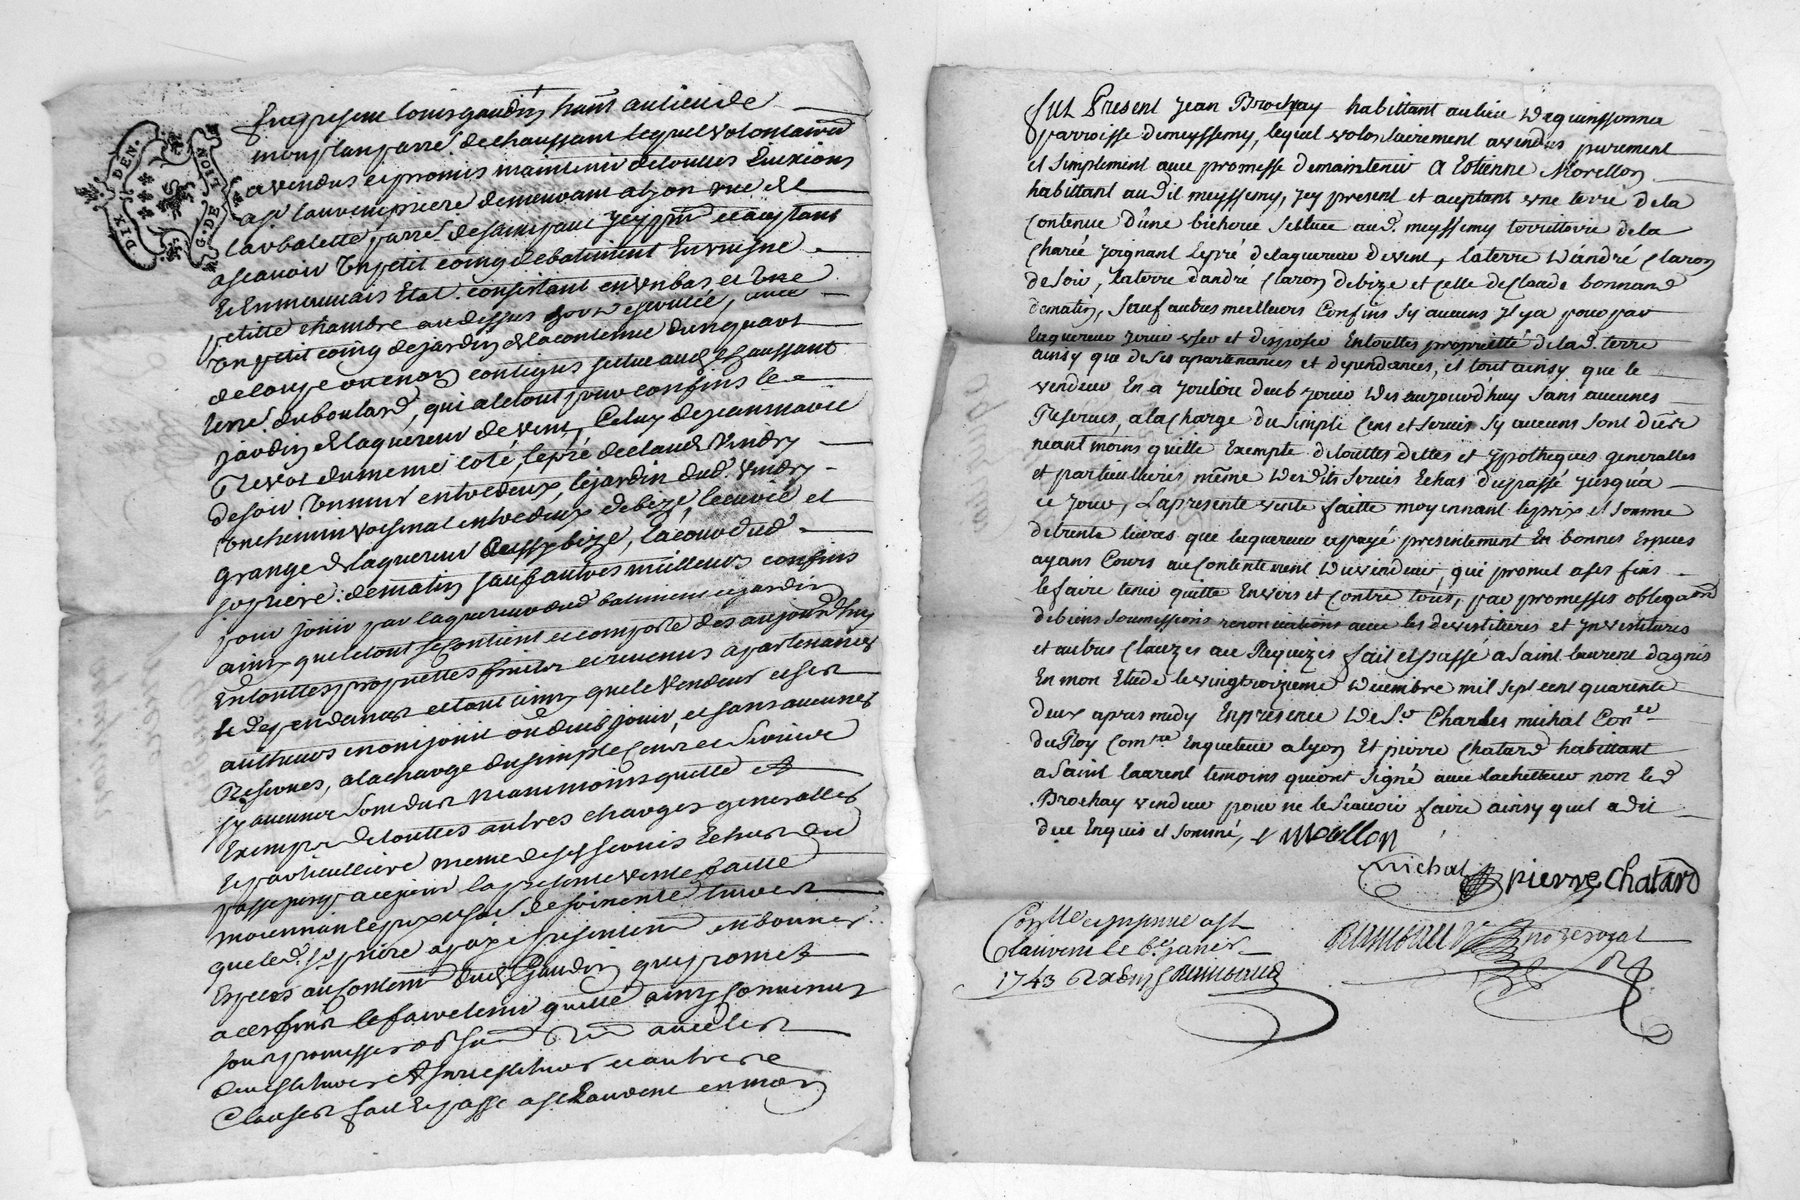 DIX DEN.
G. DE LION
Fut present louis gaudin habitant au lieu de
parr. de chaussant lequel volontairement
a vendus et promis maintenir de touttes Evixions
a laurent priere demeurant a lyon rue de
larbalette parr. de saint paul icy present et acceptant
ascavoir Un petit coing de batiment En ruigne
Et En mauvais Etat consistant en un bas et Une
petitte chambre au dessus avec
un petit coing de jardin de la contenue dun quart
de coupe ou environ contigus scitue aud. Chaussant
terre du boulard, qui a le tout pour confins le
jardin de laquereur de vent, Celuy de jean marie
du meme coté, le pré de claude Vindry
de soir Un mur entredeux, le jardin dud. Vindry
Un chemin voisinal entredeux de bize, lecurie et
grange de laquereur aussy bize, la cour dud.
sr priere de matin sauf autres meilleurs confins
pour jouir par laquereur dud batiment et jardin
ainsy que le tout se Contient et comporte des aujourdhuy
En touttes proprietes fruits et revenus apartenances
et dependances et tout ainsy que le Vendeur et ses
autheurs en ont jouit ou deub jouir, et sans aucunes
Reserves, a la charge du simple Cens et Service
sy aucuns sont dus neanmoins quitte et
Exempt de touttes autres charges generalles
Et particulliere meme desd. servis Echus du
passe jusqu a ce jour la presente vente faitte
moiennant le prix et somme de soixente livres
que led. sr priere a payé presentement en bonnes
Especes au Contentement dud Gaudin qui promet
a ces fins le faire tenir quitte ainsy convenus
sous promesses obligation avec les
devestitures Et investitures et autres
Clauses fait Et passe a st Laurent en mon
Fut Present Jean Brochay habittant au lieu de quinssonna
parroisse de meyssemy, lequel volontairement a vendus purement
et simplement avec promesse de maintenir A Estienne Morellon
habittant aud.it meyssemy, jcy present et aceptant une terre de la
contenue d'une bicheree scittuee au d. meyssemy territtoire de la
charée joignant le pré de laquereur de vent, la terre d'andré Claron
de soir, la terre d'andré Claron de bize et celle de Claude bonnand
de matin, sauf autres meilleurs Confins sy aucuns il y a pour par
laquereur jouir user et disposer En touttes proprieté de la d. terre
ainsy que de ses apartenances et dependances, et tout ainsy que le
vendeur En a joui ou deub jouir des aujourd'huy sans aucunes
Reserves, a la charge du simple Cens et servis sy aucuns sont dus
neantmoins quitte Exempte de touttes dettes et ypotheques generalles
et particullieres même desdits servis Echus du passé jusqu'à
ce jour, La presente vente faitte moyennant le prix et somme
de trente livres que laquereur a payé presentement En bonnes Especes
ayans Cours au Contentement du vendeur, qui promet a ses fins
le faire tenir quitte Envers et Contre tous, par promesses obligaõns
de biens soumissions renonciations avec les devestitures et jnvestitures
et autres Clauzes ace Requizes fait et passé a Saint laurent d'agnis
En mon Etude le vingt troizieme decembre mil sept cent quarente
deux apres midy En presence de Sr. Charles michal Coner
du Roy Comre Enqueteur a lyon Et pierre Chatard habittant
a Saint laurent temoins qui ont signé avec lachetteur non le d
Brochay vendeur pour ne le scavoir faire ainsy quil a dit
de ce Enquis et sommé, e morellon
Michal pierre Chatard
Conlle et insinue a st
laurent le 6e janer
1743 Reçu
no. Royal